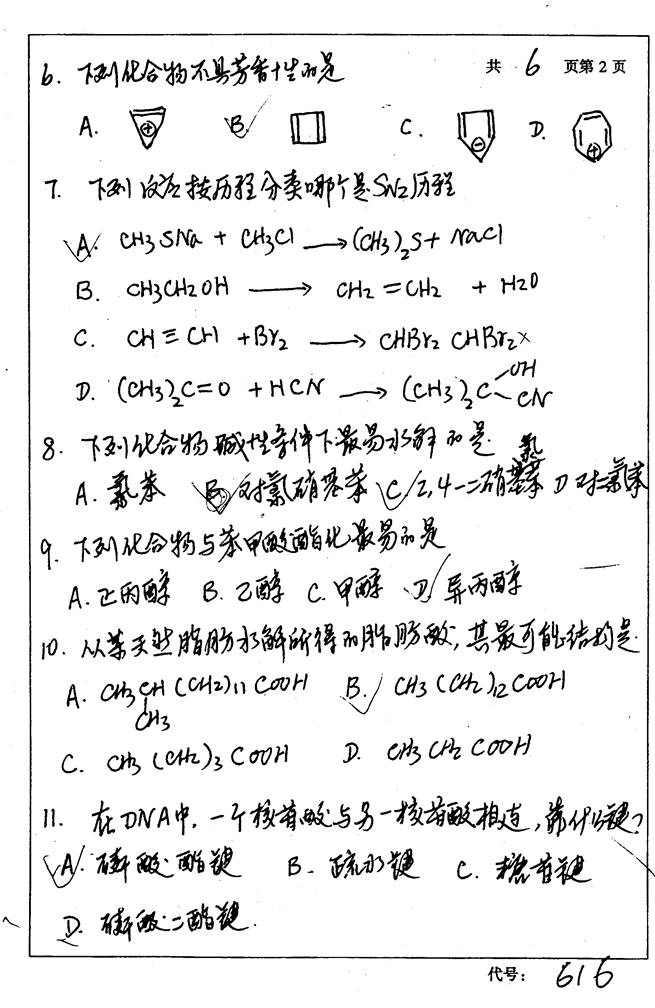 共 6 页第 2 页
6. 下列化合物不具芳香性的是
A. B. C. D.
7. 下列反应按历程分类哪个是SN2历程
A. CH3SNa + CH3Cl → (CH3)2S + NaCl
B. CH3CH2OH → CH2=CH2 + H2O
C. CH≡CH + Br2 → CHBr2CHBr2
D. (CH3)2C=O + HCN → (CH3)2C
OH
CN
8. 下列化合物碱性条件下最易水解的是
A. 氯苯 B. 对氯硝基苯 C. 2,4-二硝基氯苯 D 对二氯苯
9. 下列化合物与苯甲酸酯化最易的是
A. 正丙醇 B. 乙醇 C. 甲醇 D. 异丙醇
10. 从某天然脂肪水解所得的脂肪酸,其最可能结构是
A. CH3CH(CH2)11COOH B. CH3(CH2)12COOH
CH3
C. CH3(CH2)3COOH D. CH3CH2COOH
11. 在DNA中,一个核苷酸与另一核苷酸相连,靠什么键?
A. 磷酸酯键 B. 疏水键 C. 糖苷键
D. 磷酸二酯键.
代号: 616